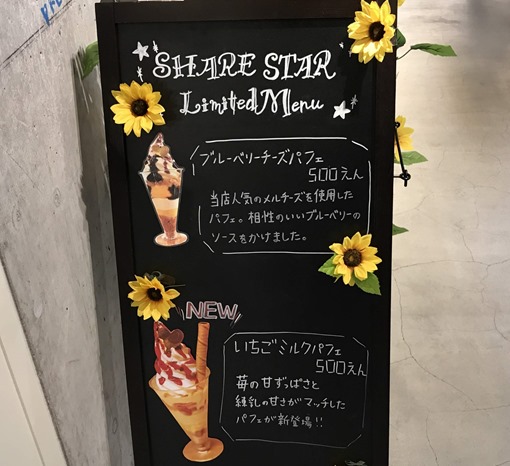 SHARE STAR
Limited Menu
ブルーベリーチーズパフェ
500えん
当店人気のメルチーズを使用した
パフェ。相性のいいブルーベリーの
ソースをかけました。
NEW
いちごミルクパフェ
500えん
苺の甘ずっぱさと
練乳の甘さがマッチした
パフェが新登場!!